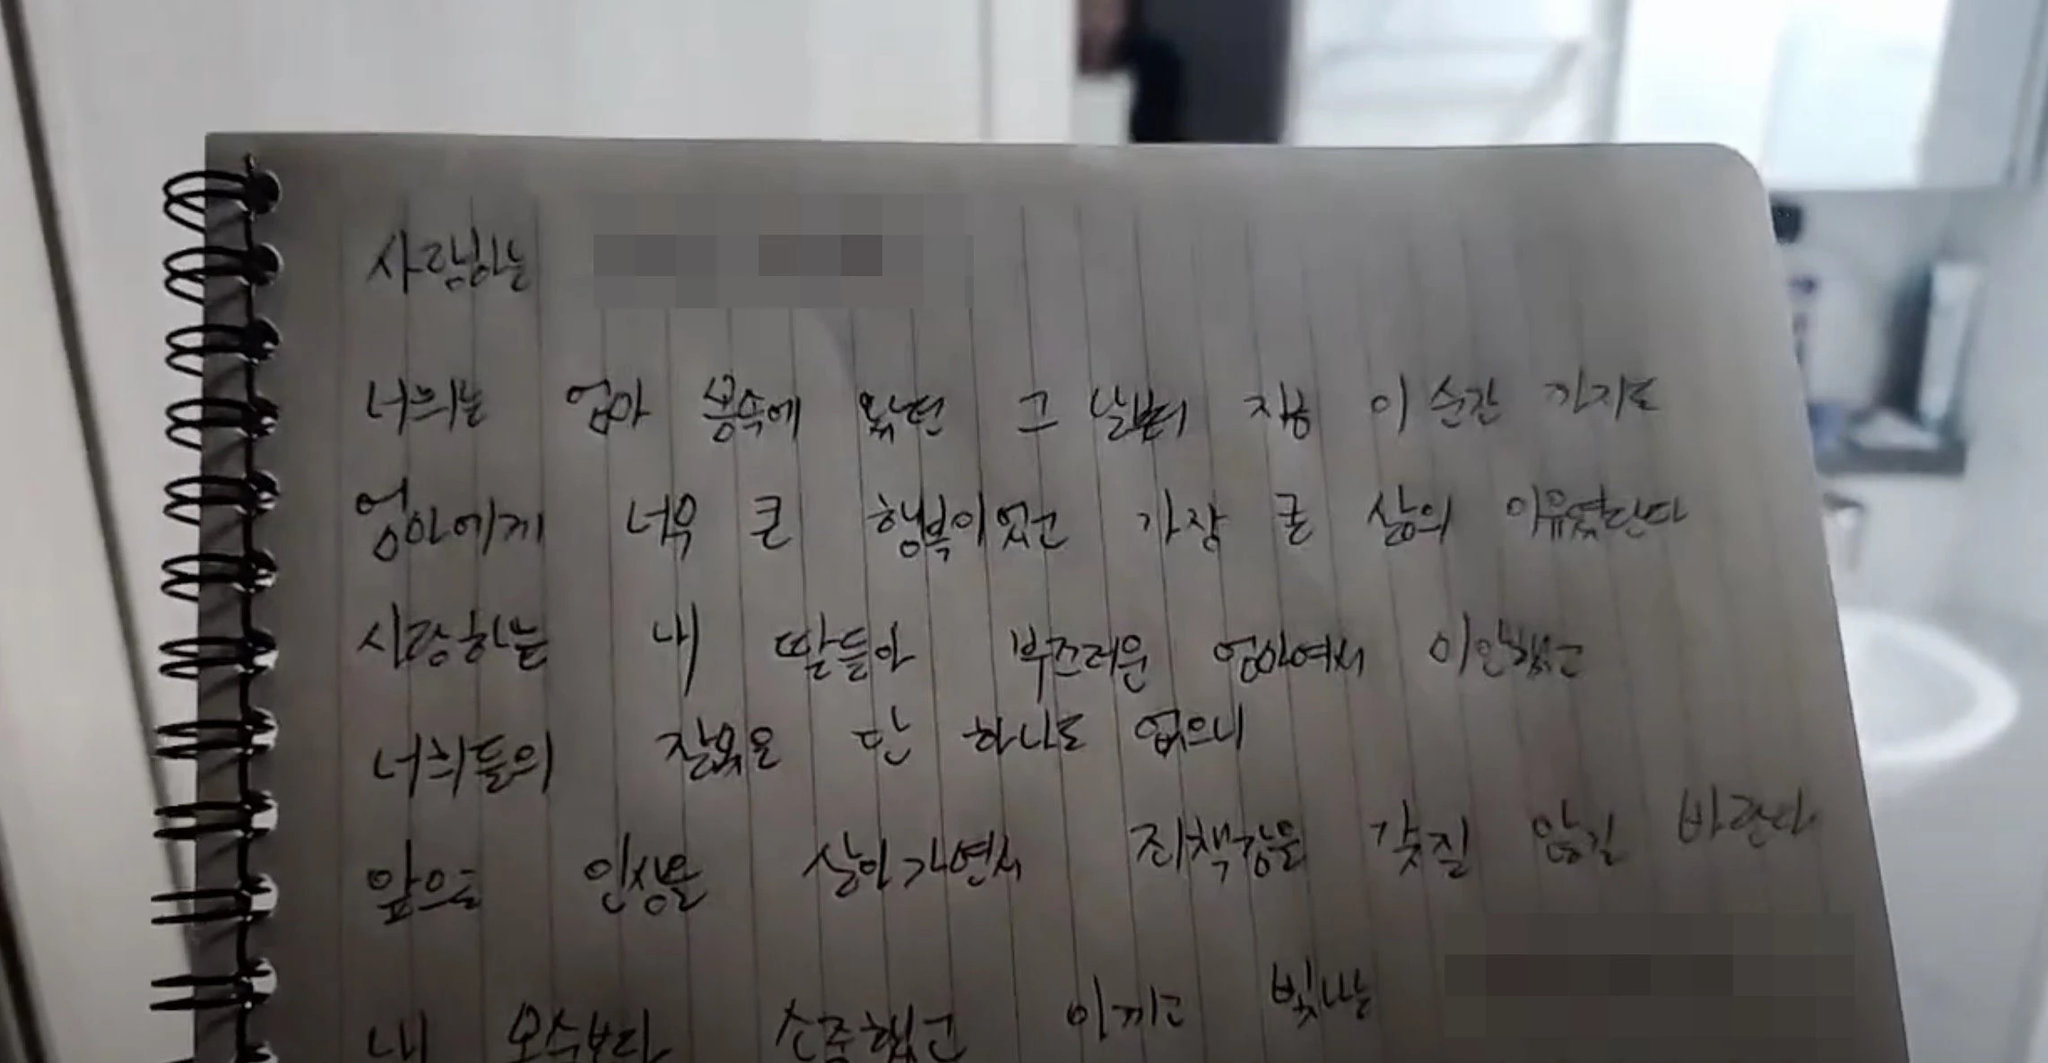 사랑하는
너희는 엄마 뱃속에 왔던 그 날부터 지금 이 순간 까지도
엄마에게 너무 큰 행복이었고 가장 큰 삶의 이유였단다
사랑하는 내 딸들아 부끄러운 엄마여서 미안했고
너희들의 잘못은 단 하나도 없으니
앞으로 인생을 살아가면서 죄책감을 갖질 않길 바란다
내 목숨보다 소중했고 아끼고 빛나는